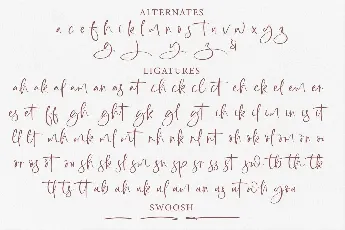 ALTERNATES
a c e f h i k l m n o s t u v w x y z
g j y z &
LIGATURES
ah ak al am an as at ch ck cl ct eh ek el em er
es et ff gh ght gk gl gt ih ik il im in is it
ll lt mh mk ml mt nh nk nl nt oh ok ol om on
or os ot ou sh sk sl sm sn sp sr ss st th tk
tl ts tt uh uk ul um un us ut wh you
SWOOSH